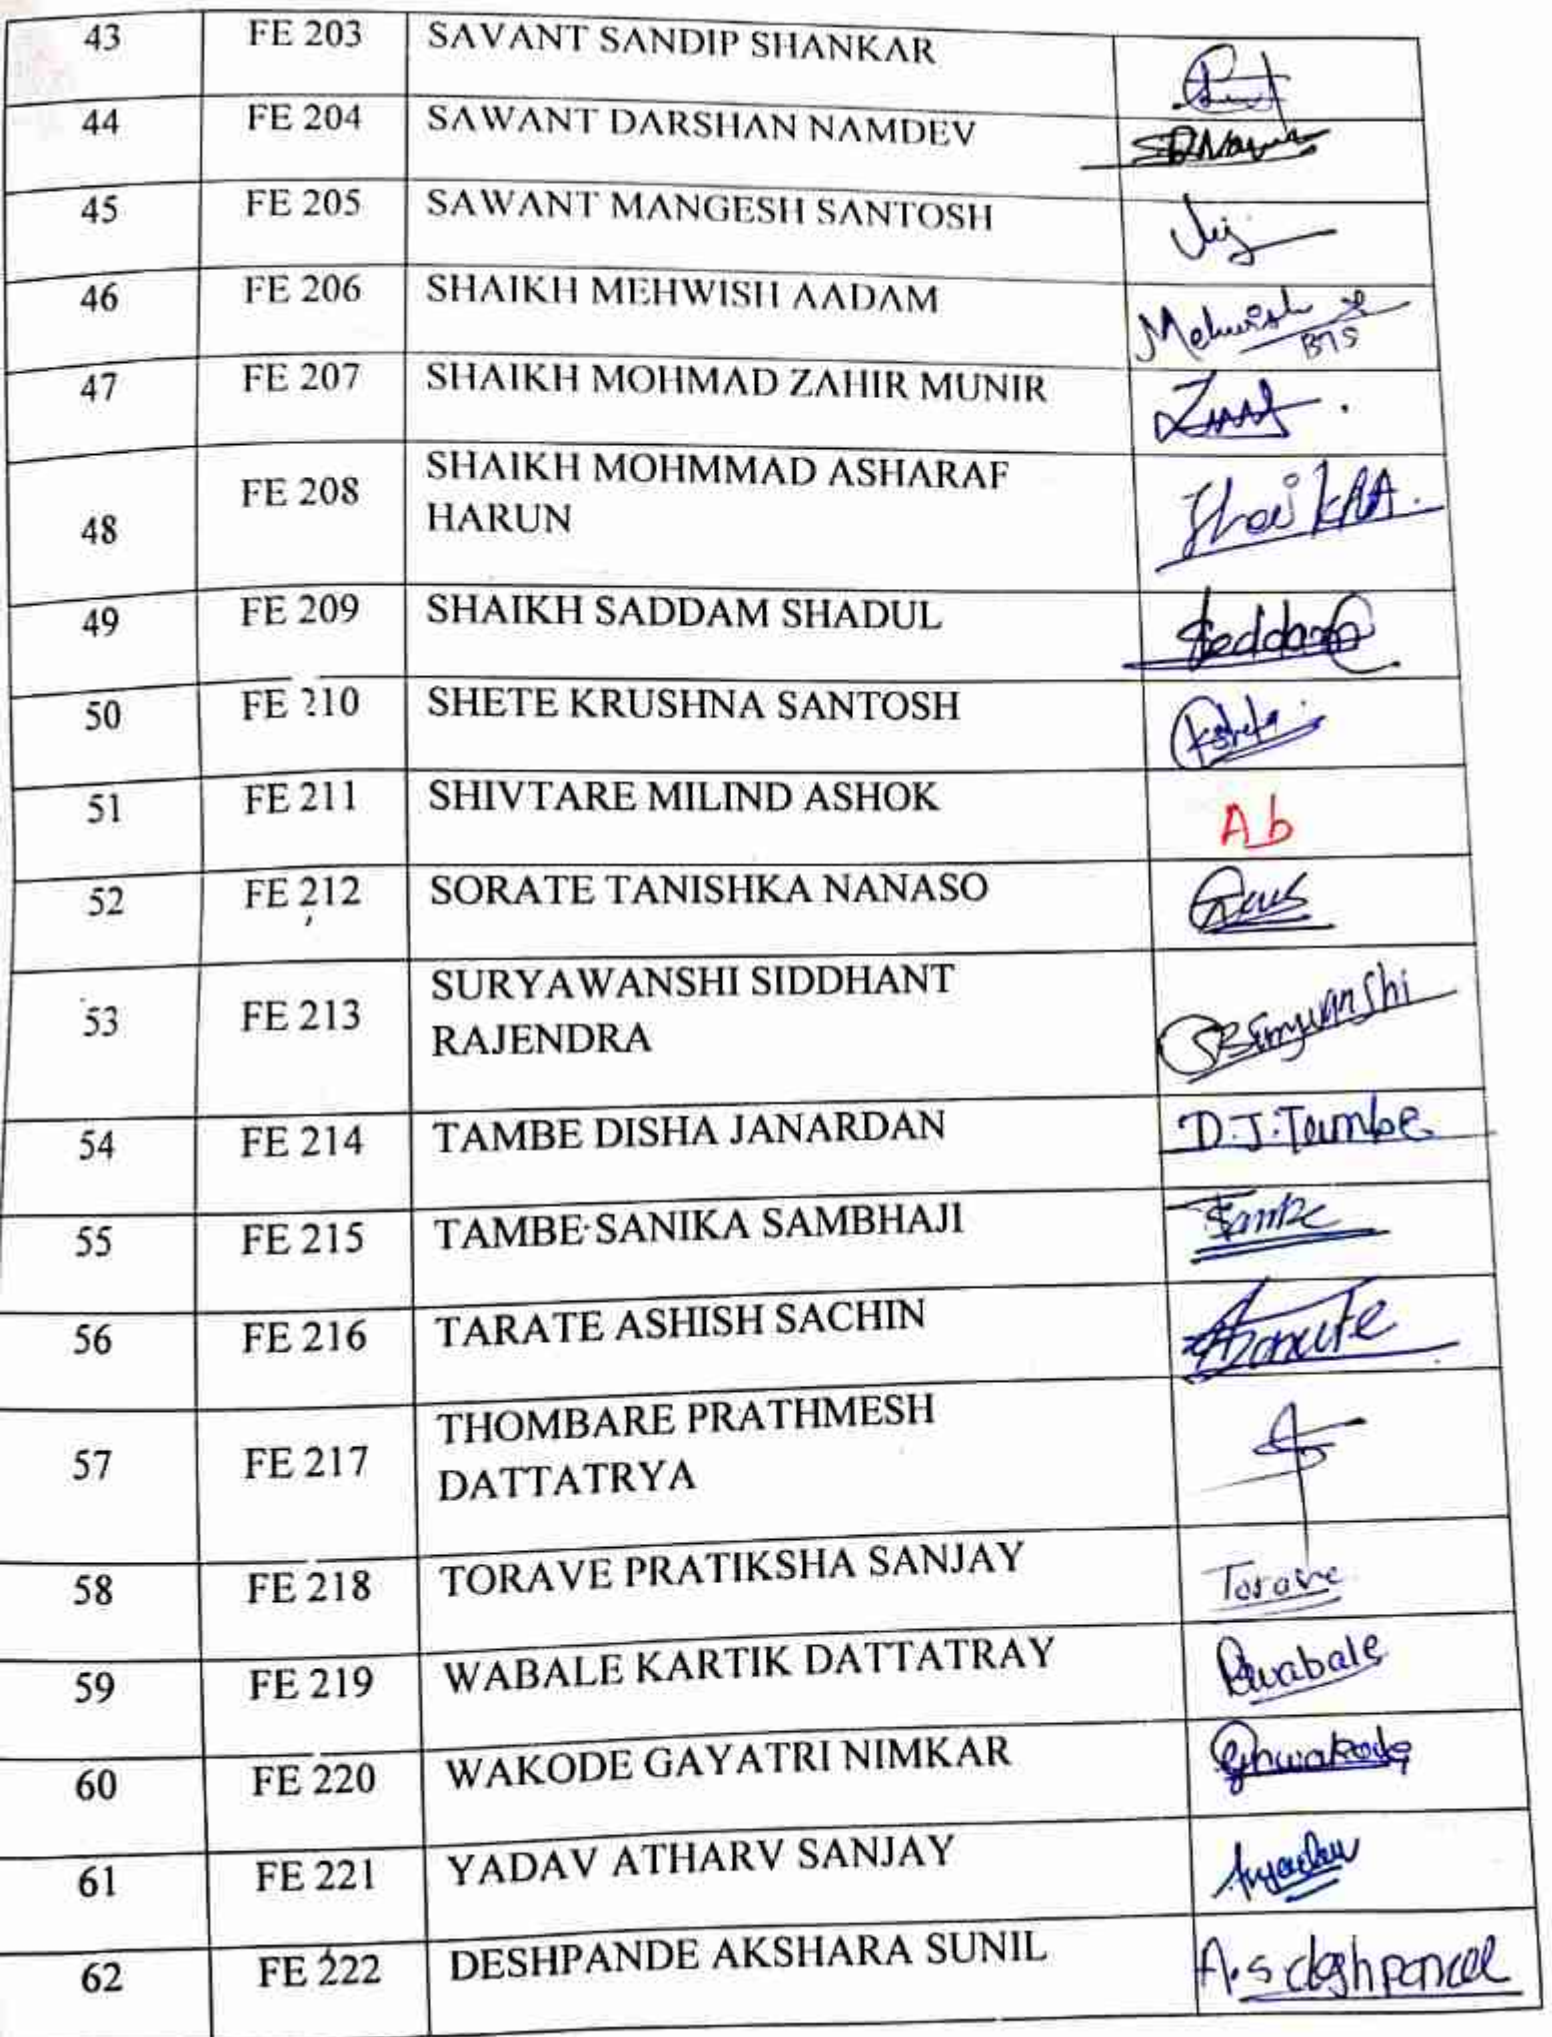 43 FE 203 SAVANT SANDIP SHANKAR
44 FE 204 SAWANT DARSHAN NAMDEV
45 FE 205 SAWANT MANGESH SANTOSH
46 FE 206 SHAIKH MEHWISH AADAM Mehwish
BTS
47 FE 207 SHAIKH MOHMAD ZAHIR MUNIR
48 FE 208 SHAIKH MOHMMAD ASHARAF
HARUN
49 FE 209 SHAIKH SADDAM SHADUL
50 FE 210 SHETE KRUSHNA SANTOSH
51 FE 211 SHIVTARE MILIND ASHOK Ab
52 FE 212 SORATE TANISHKA NANASO
53 FE 213 SURYAWANSHI SIDDHANT
RAJENDRA
54 FE 214 TAMBE DISHA JANARDAN D.J.Tambe
55 FE 215 TAMBE SANIKA SAMBHAJI
56 FE 216 TARATE ASHISH SACHIN
57 FE 217 THOMBARE PRATHMESH
DATTATRYA
58 FE 218 TORAVE PRATIKSHA SANJAY Torave
59 FE 219 WABALE KARTIK DATTATRAY
60 FE 220 WAKODE GAYATRI NIMKAR
61 FE 221 YADAV ATHARV SANJAY
62 FE 222 DESHPANDE AKSHARA SUNIL A.s deshpande